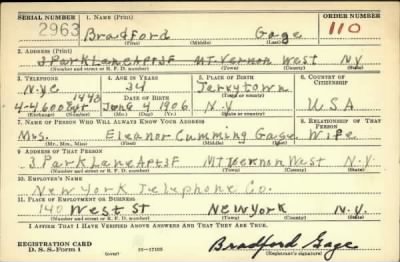 SERIAL NUMBER 1. NAME (Print) ORDER NUMBER
2963 Bradford Gage 110
(First) (Middle) (Last)
2. ADDRESS (Print)
3 Park Lane Apt 3F Mt. Vernon West N.Y.
(Number and street or R. F. D. number) (Town) (County) (State)
3. TELEPHONE 4. AGE IN YEARS 5. PLACE OF BIRTH 6. COUNTRY OF CITIZENSHIP
N.Y.C 34 Terrytown
1443 DATE OF BIRTH (Town or county)
4-4600 Ext June 4 1906 N.Y U S A
(Exchange) (Number) (Mo.) (Day) (Yr.) (State or country)
7. NAME OF PERSON WHO WILL ALWAYS KNOW YOUR ADDRESS 8. RELATIONSHIP OF THAT PERSON
Mrs. Eleanor Cumming Gage Wife
(Mr., Mrs., Miss) (First) (Middle) (Last)
9. ADDRESS OF THAT PERSON
3 Park Lane Apt 3F Mt Vernon West N.Y.
(Number and street or R. F. D. number) (Town) (County) (State)
10. EMPLOYER'S NAME
New York Telephone Co.
11. PLACE OF EMPLOYMENT OR BUSINESS
140 West St New York N.Y.
(Number and street or R. F. D. number) (Town) (County) (State)
I AFFIRM THAT I HAVE VERIFIED ABOVE ANSWERS AND THAT THEY ARE TRUE.
REGISTRATION CARD
D. S. S. Form 1 (over) 16—17105 Bradford Gage
(Registrant's signature)